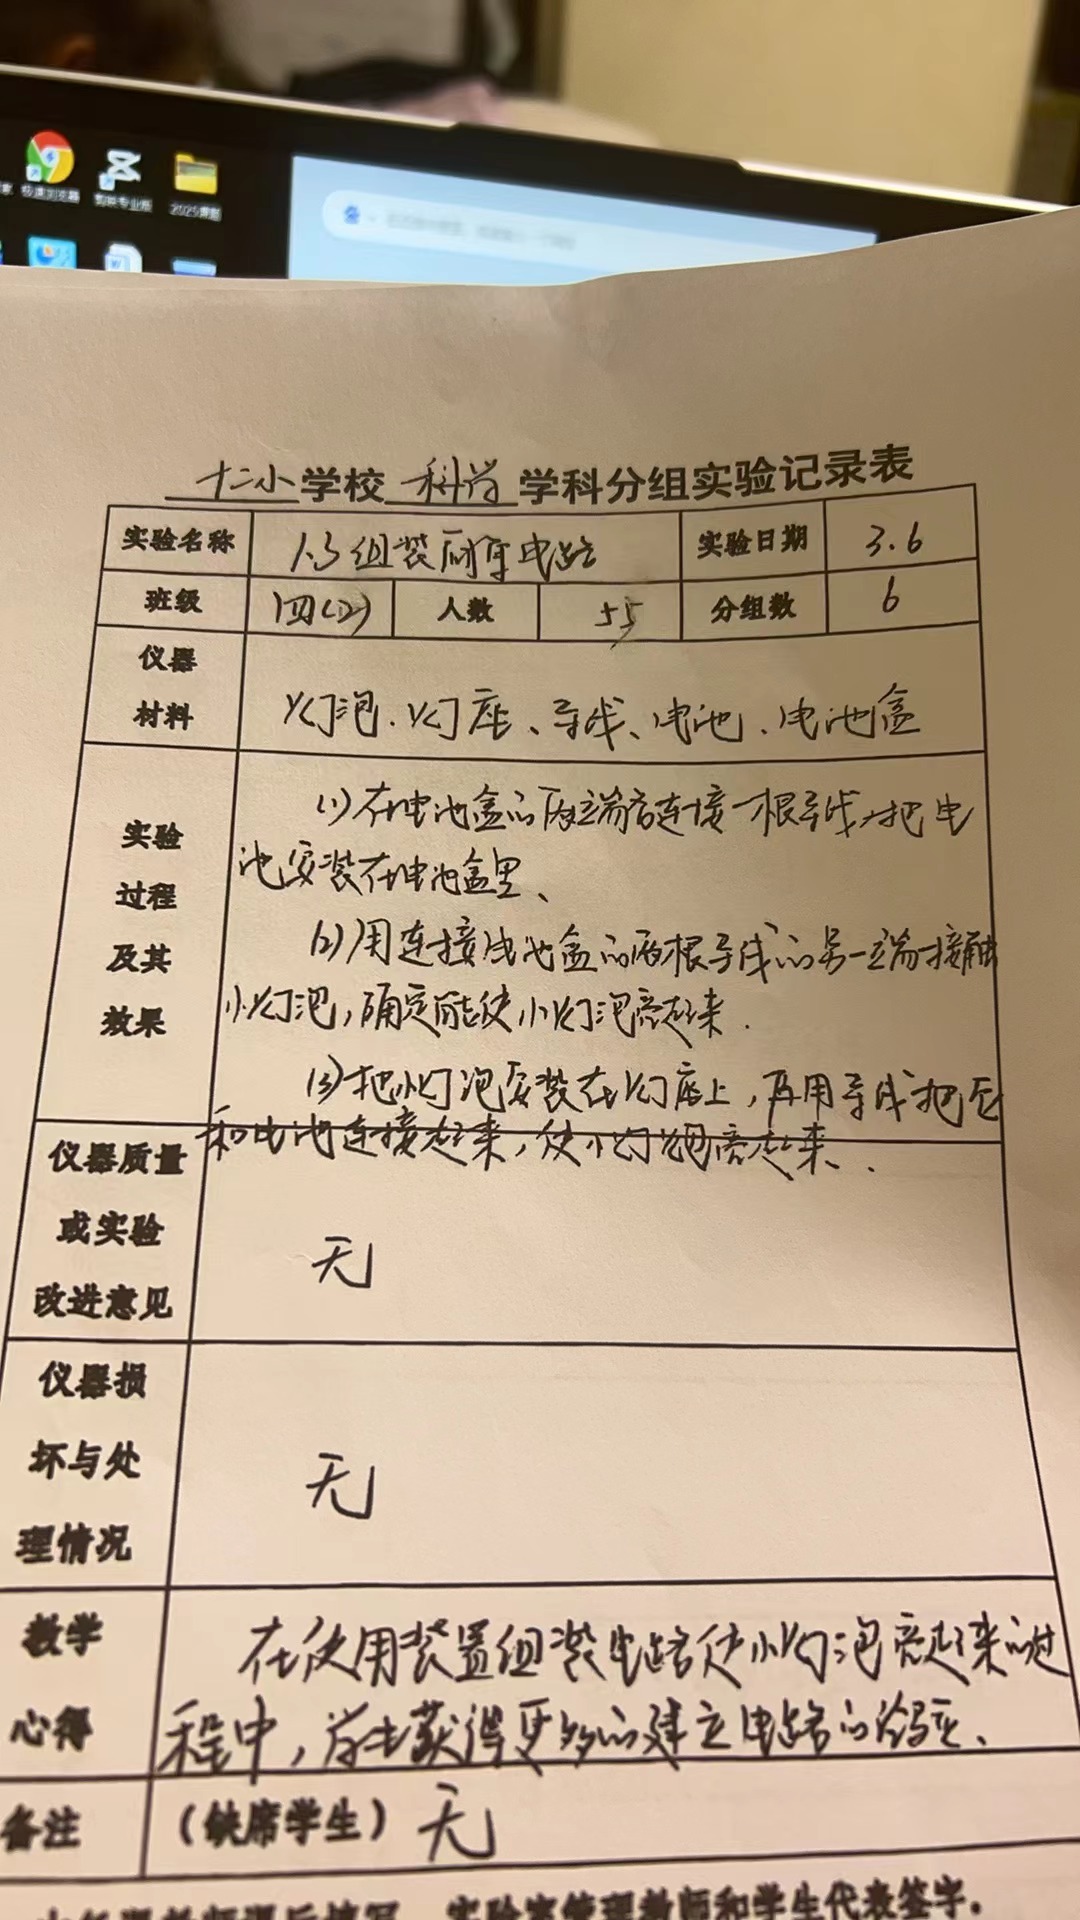 极速浏览器 剪映专业版 2025
十二小学校 科学 学科分组实验记录表
实验名称 1.3组装简单电路 实验日期 3.6
班级 四(2) 人数 55 分组数 6
仪器
材料
灯泡、灯座、导线、电池、电池盒
实验
过程
及其
效果
(1)在电池盒的两端各连接一根导线,把电
池安装在电池盒里、
(2)用连接线池盒的两根导线的另一端接触
小灯泡,确定能使小灯泡亮起来.
(3)把小灯泡安装在灯座上,再用导线把它
和电池连接起来,使小灯泡亮起来、.
仪器质量
或实验
改进意见
无
仪器损
坏与处
理情况
无
教学
心得
在使用装置组装电路使小灯泡亮起来的过
程中,学生获得更多的建立电路的经验、
备注 (缺席学生) 无
实验室管理教师和学生代表签字。